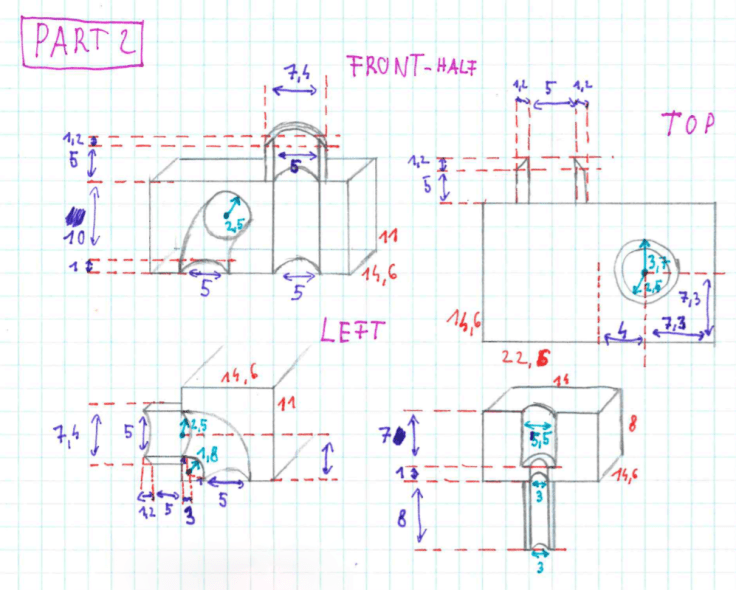 PART 2
FRONT-HALF
7,4
1,2
5
5
10
2,5
11
1
5
5
14,6
TOP
1,2
5
1,2
1,2
5
3,7
2,5
7,3
4
7,3
14,6
22,6
LEFT
14,6
11
7,4
5
2,5
1,8
5
1,2
5
3
14
8
7
5,5
1
3
14,6
8
3